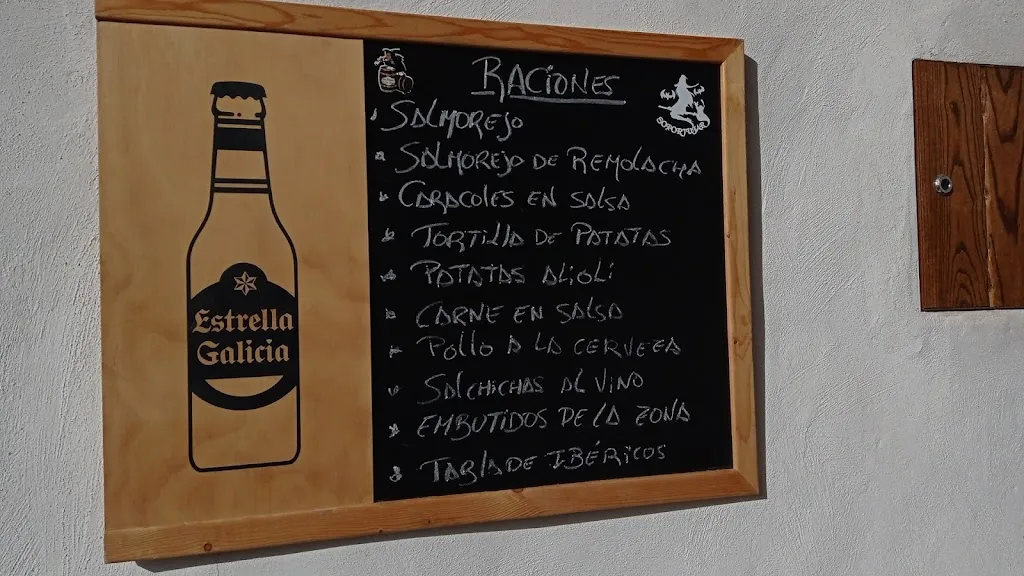 Estrella
Galicia
RACIONES
SOPORTUJAR
SALMOREJO
SALMOREJO DE REMOLACHA
CARACOLES EN SALSA
TORTILLA DE PATATAS
PATATAS ALIOLI
CARNE EN SALSA
POLLO A LA CERVEZA
SALCHICHAS AL VINO
EMBUTIDOS DE LA ZONA
TABLA DE IBÉRICOS